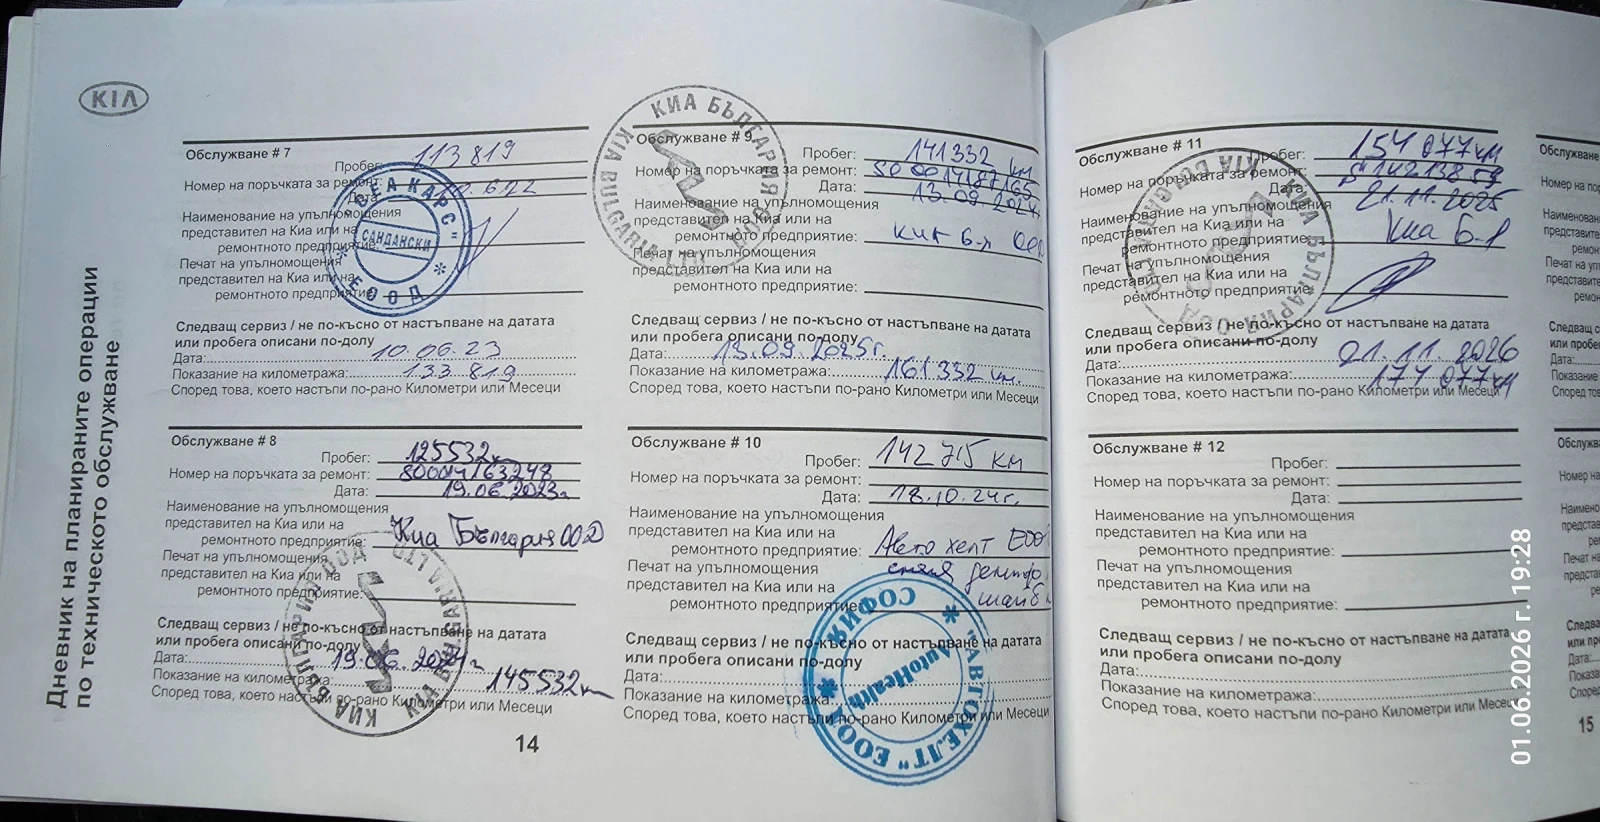 KIA
Дневник на планираните операции
по техническото обслужване
Обслужване # 7
Пробег: 113 819
Номер на поръчката за ремонт:
Дата: 10.6.22
Наименование на упълномощения
представител на Киа или на
ремонтното предприятие:
Печат на упълномощения
представител на Киа или на
ремонтното предприятие:
"СЕА КАРС"
САНДАНСКИ
ЕООД
Следващ сервиз / не по-късно от настъпване на датата
или пробега описани по-долу
Дата: 10.06.23
Показание на километража: 133.819
Според това, което настъпи по-рано Километри или Месеци
Обслужване # 8
Пробег: 125532
Номер на поръчката за ремонт: 800014163248
Дата: 19.06.2023г
Наименование на упълномощения
представител на Киа или на
ремонтното предприятие: Киа България ООД
Печат на упълномощения
представител на Киа или на
ремонтното предприятие:
КИА БЪЛГАРИЯ ООД
KIA BULGARIA LTD
Следващ сервиз / не по-късно от настъпване на датата
или пробега описани по-долу
Дата: 19.06.2024г
Показание на километража: 145532
Според това, което настъпи по-рано Километри или Месеци
14
КИА БЪЛГАРИЯ ООД
KIA BULGARIA LTD
Обслужване # 9
Пробег: 141 332 км
Номер на поръчката за ремонт: 500014187165
Дата: 13.09.2024
Наименование на упълномощения
представител на Киа или на
ремонтното предприятие: Киа Б-я ООД
Печат на упълномощения
представител на Киа или на
ремонтното предприятие:
Следващ сервиз / не по-късно от настъпване на датата
или пробега описани по-долу
Дата: 13.09.2025г.
Показание на километража: 161 332 км.
Според това, което настъпи по-рано Километри или Месеци
Обслужване # 10
Пробег: 142 715 км
Номер на поръчката за ремонт:
Дата: 18.10.24г.
Наименование на упълномощения
представител на Киа или на
ремонтното предприятие: Авто хелт ЕООД
Печат на упълномощения
представител на Киа или на
ремонтното предприятие:
"АВТОХЕЛТ" ЕООД
СОФИЯ
AutoHealth
Следващ сервиз / не по-късно от настъпване на датата
или пробега описани по-долу
Дата:
Показание на километража:
Според това, което настъпи по-рано Километри или Месеци
Обслужване # 11
Пробег: 154 077 км
Номер на поръчката за ремонт:
Дата: 21.11.2025
Наименование на упълномощения
представител на Киа или на
ремонтното предприятие: Киа Б-я
Печат на упълномощения
представител на Киа или на
ремонтното предприятие:
КИА БЪЛГАРИЯ ООД
KIA BULGARIA
Следващ сервиз / не по-късно от настъпване на датата
или пробега описани по-долу
Дата: 21.11.2026
Показание на километража: 174 077км
Според това, което настъпи по-рано Километри или Месеци
Обслужване # 12
Пробег:
Номер на поръчката за ремонт:
Дата:
Наименование на упълномощения
представител на Киа или на
ремонтното предприятие:
Печат на упълномощения
представител на Киа или на
ремонтното предприятие:
Следващ сервиз / не по-късно от настъпване на датата
или пробега описани по-долу
Дата:
Показание на километража:
Според това, което настъпи по-рано Километри или Месеци
15
01.06.2026 г. 19:28